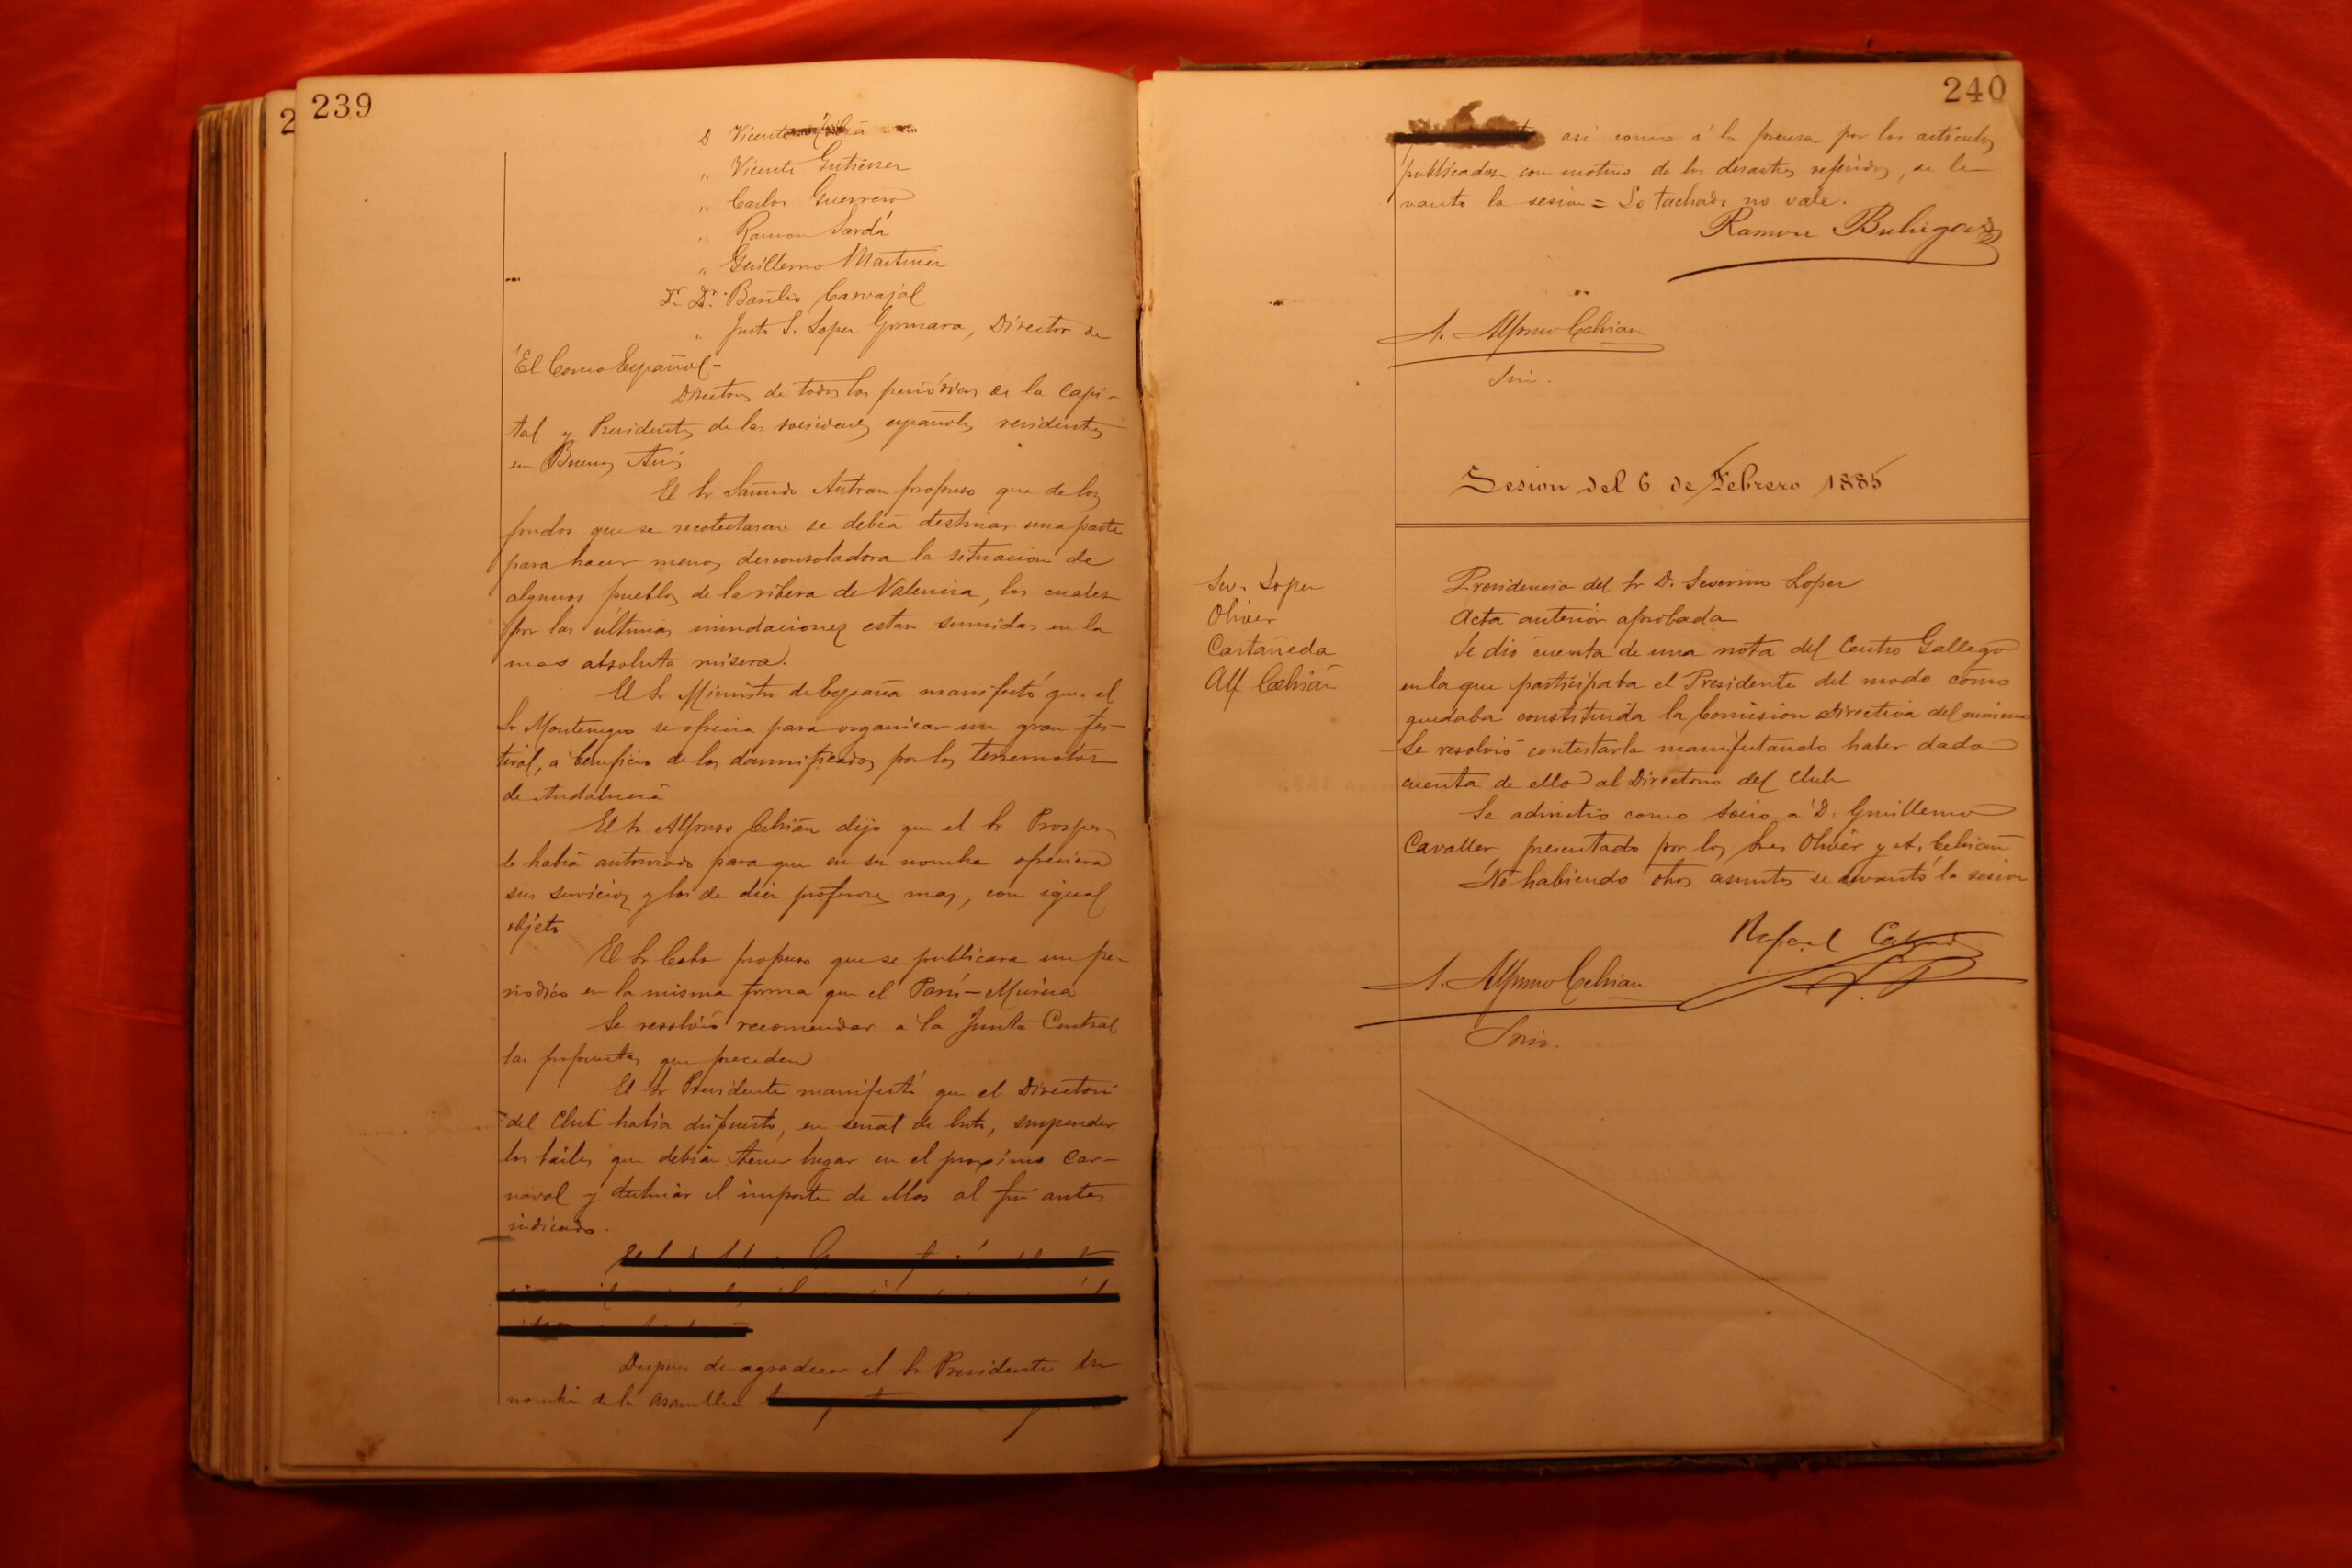 239
D Vicente
„ Vicente Gutierrez
„ Carlos Guerrero
„ Ramon Sardá
„ Guillermo Martinez
Sr. Dr. Basilio Carvajal
„ Justo S. Lopez Gomara, Director de
"El Correo Español"
Directores de todos los periódicos de la Capi-
tal y Presidentes de las sociedades españolas residentes
en Buenos Aires
El Sr Sañudo Autran propuso que de los
fondos que se recolectaran se debia destinar una parte
para hacer menos desconsoladora la situacion de
algunos pueblos de la ribera de Valencia, los cuales
por las últimas inundaciones estan sumidos en la
mas absoluta misera.
El Sr Ministro de España manifestó que el
Sr Montenegro se ofrecia para organizar un gran fes-
tival, a beneficio de los damnificados por los terremotos
de Andalucia
El Sr Alfonso Cebrián dijo que el Sr Prosper
le habia autorizado para que en su nombre ofreciera
sus servicios y los de diez profesores mas, con igual
objeto
El Sr Castro propuso que se publicara un pe-
riodico en la misma forma que el Paris-Murcia
Se resolvió recomendar a la Junta Central
las propuestas que preceden
El Sr Presidente manifestó que el Directorio
del Club habia dispuesto, en señal de luto, suspender
los bailes que debian tener lugar en el proximo Car-
naval y destinar el importe de ellos al fin antes
indicado.
Despues de agradecer el Sr Presidente en
nombre de la asamblea
240
asi como á la prensa por los articulos
publicados con motivo de los desastres referidos, se le-
vanto la sesion = Lo tachado no vale.
Ramon Buhigas
A. Alfonso Cebrian
Srio.
Sesion del 6 de Febrero 1885
Sev. Lopez
Oliver
Castañeda
Alf Cebrián
Presidencia del Sr D. Severino Lopez
Acta anterior aprobada
Se dio cuenta de una nota del Centro Gallego
en la que participaba el Presidente del modo como
quedaba constituida la Comision directiva del mismo
Se resolvió contestarla manifestando haber dado
cuenta de ello al Directorio del Club
Se admitio como socio a D. Guillermo
Cavaller presentado por los Sres Oliver y A. Cebrian
No habiendo otros asuntos se levantó la sesion
Rafael Calzada
A. Alfonso Cebrian
Srio.